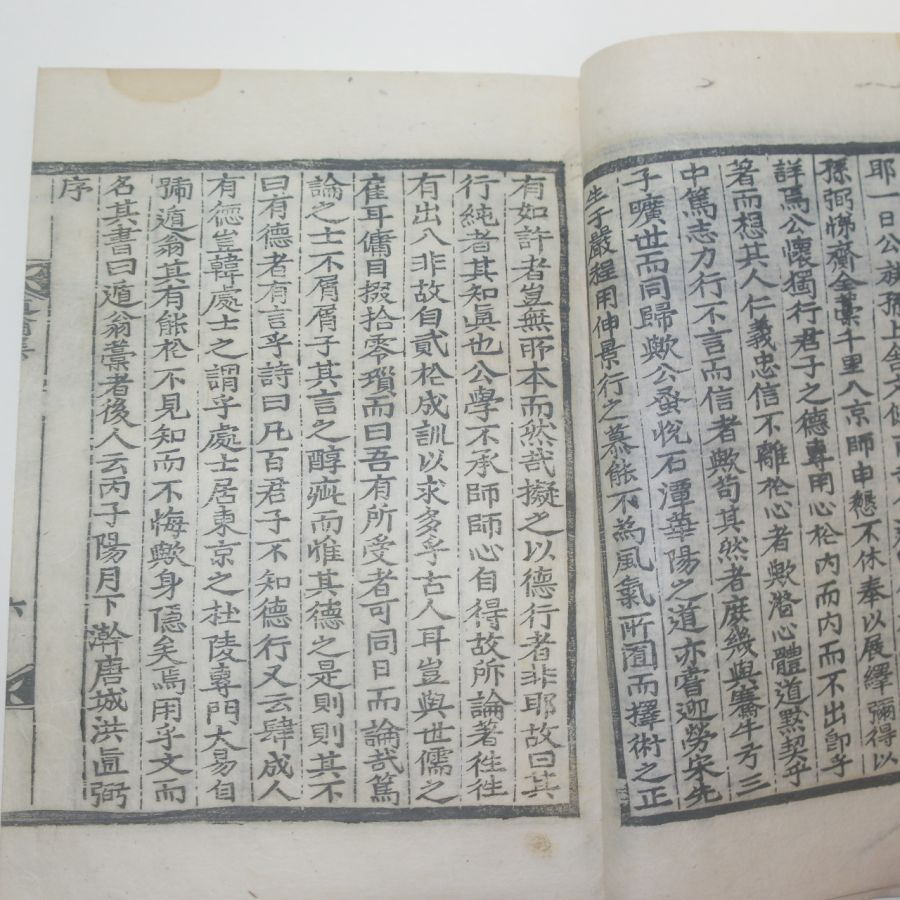 耶一日公族孫上舍文
孫弼悌齋全藁千里入京師申懇不休奉以展繹彌得以
詳焉公懷獨行君子之德專用心於內而內而不出卽乎
著而想其人仁義忠信不離於心者歟潛心體道默契乎
中篤志力行不言而信者歟苟其然者庶幾與騫牛夯三
子曠世而同歸歟公蚤悅石潭華陽之道亦嘗迎勞宋先
生子嚴程用伸景行之慕能不為風氣所囿而擇術之正
有如許者豈無所本而然哉擬之以德行者非耶故曰其
行純者其知眞也公學不承師師心自得故所論著徃徃
有出入非故自貳於成訓以求多乎古人耳豈與世儒之
隺耳傭目掇拾零瑣而曰吾有所受者可同日而論哉篤
論之士不屑屑子其言之醇疵而惟其德之是則則其不
曰有德者有言乎詩曰凡百君子不知德行又云肆成人
有德豈韓處士之謂乎處士居東京之杜陵專門大易自
號遁翁其有能於不見知而不悔歟身隱矣焉用乎文而
名其書曰遁翁藁者後人云丙子陽月下澣唐城洪直弼
序
六